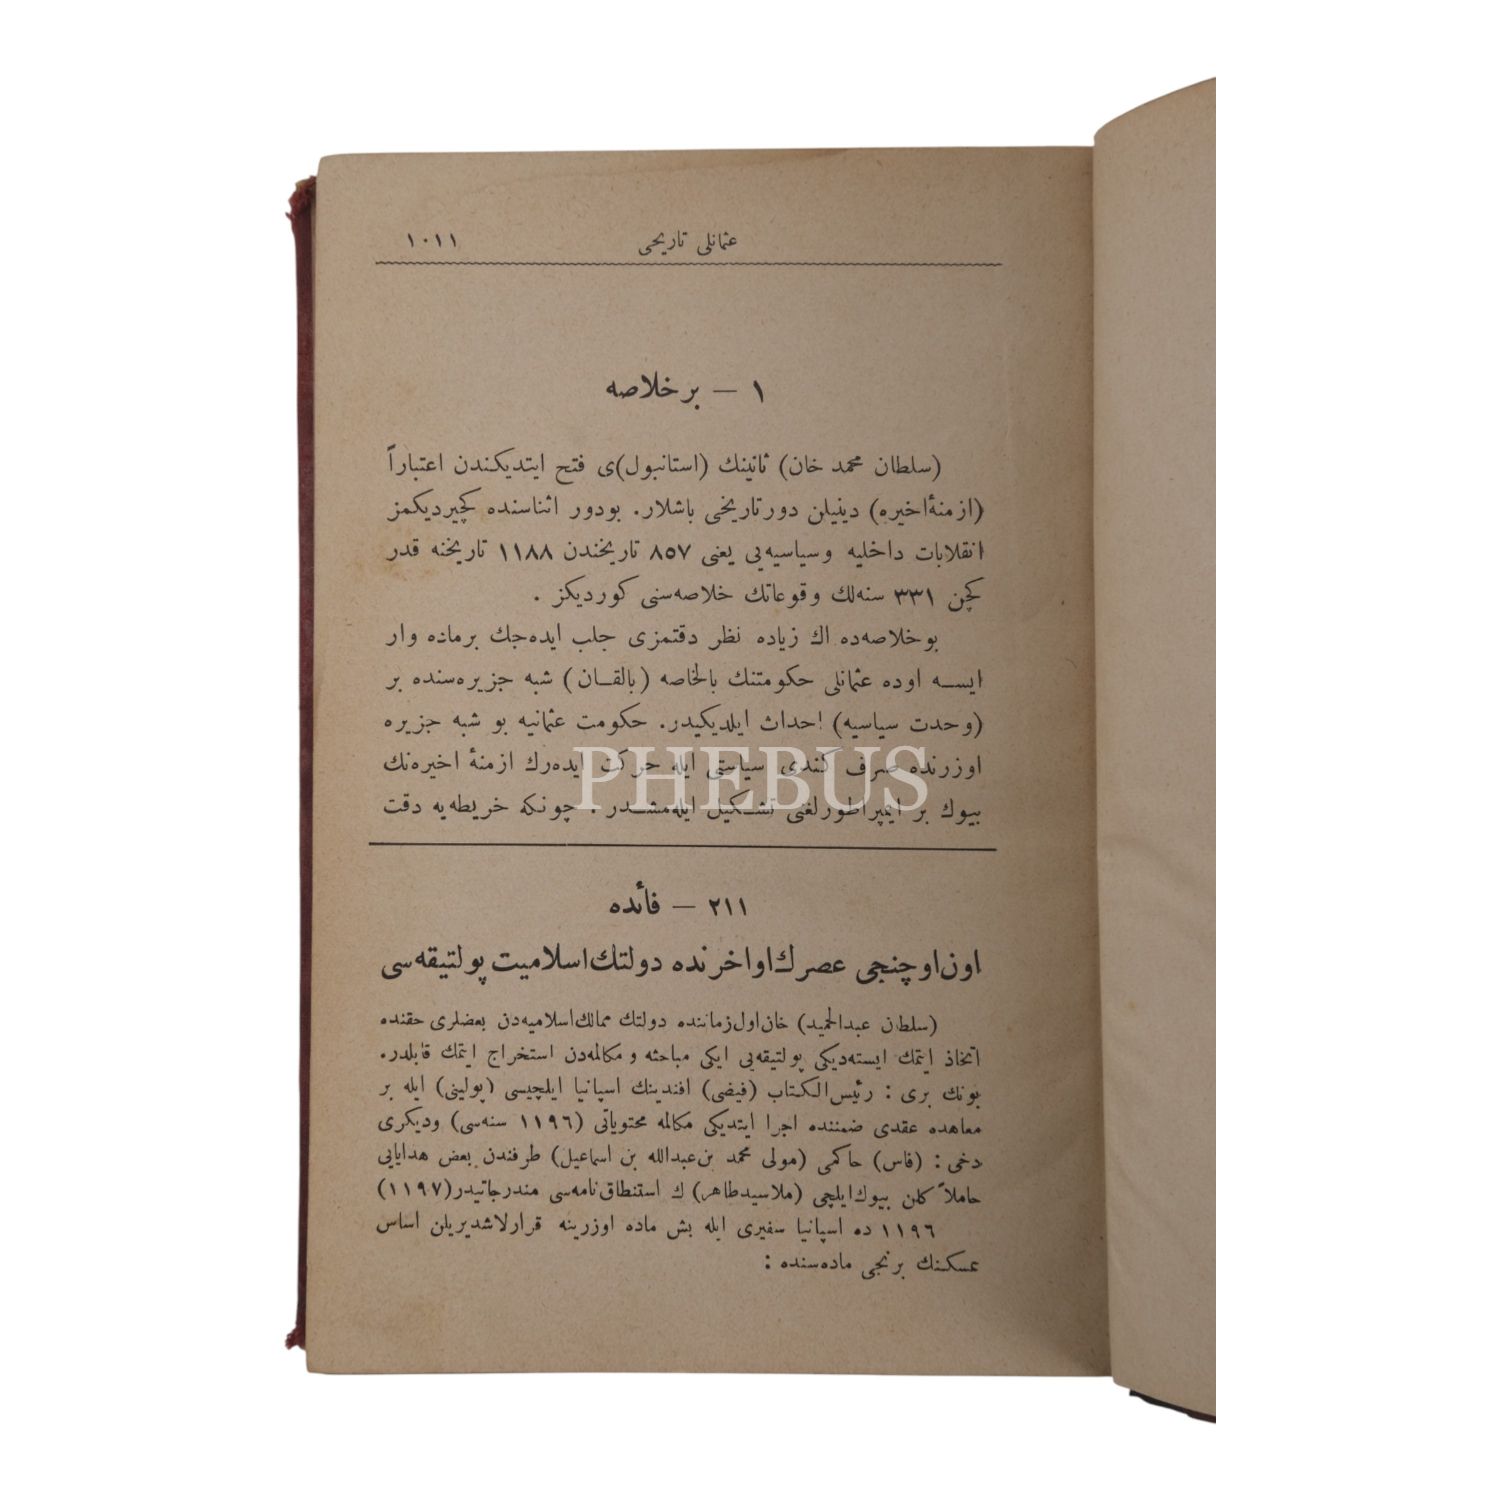 عثمانلی تاریخی ١٠١١
١ — بر خلاصه
(سلطان محمد خان) ثانینك (استانبول)ی فتح ایتدیكندن اعتباراً
(ازمنهٔ اخیره) دینیلن دور تاریخی باشلار. بودور اثناسنده كچیردیكمز
انقلابات داخلیه وسیاسیه‌یی یعنی ٨٥٧ تاریخندن ١١٨٨ تاریخنه قدر
كچن ٣٣١ سنه‌لك وقوعاتك خلاصه‌سنی كوردیكز .
بوخلاصه‌ده اك زیاده نظر دقتمزی جلب ایده‌جك برماده وار
ایسه اوده عثمانلی حكومتنك بالخاصه (بالقان) شبه جزیره‌سنده بر
(وحدت سیاسیه) احداث ایلدیكیدر. حكومت عثمانیه بو شبه جزیره
اوزرنده صرف كندی سیاستی ایله حركت ایده‌رك ازمنهٔ اخیره‌نك
بیوك بر ایمپراطورلغنی تشكیل ایله‌مشدر . چونكه خریطه‌یه دقت
PHEBUS
٢١١ — فائده
اون اوچنجی عصرك اواخرنده دولتك اسلامیت پولتیقه‌سی
(سلطان عبدالحمید) خان اول زماننده دولتك ممالك اسلامیه‌دن بعضلری حقنده
اتخاذ ایتمك ایسته‌دیكی پولتیقه‌یی ایكی مباحثه و مكالمه‌دن استخراج ایتمك قابلدر.
بونك بری : رئیس‌الكتاب (فیضی) افندینك اسپانیا ایلچیسی (پولینی) ایله بر
معاهده عقدی ضمننده اجرا ایتدیكی مكالمه محتویاتی (١١٩٦ سنه‌سی) ودیكری
دخی : (فاس) حاكمی (مولی محمد بن عبدالله بن اسماعیل) طرفندن بعض هدایایی
حاملاً كلن بیوك ایلچی (ملا سید طاهر) ك استنطاق‌نامه‌سی مندرجاتیدر (١١٩٧)
١١٩٦ ده اسپانیا سفیری ایله بش ماده اوزرینه قرارلاشدیریلن اساس
عسكنك برنجی ماده‌سنده :